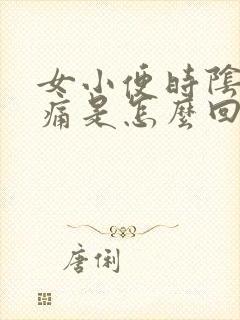 女小便時陰
痛是怎麼回
唐俐